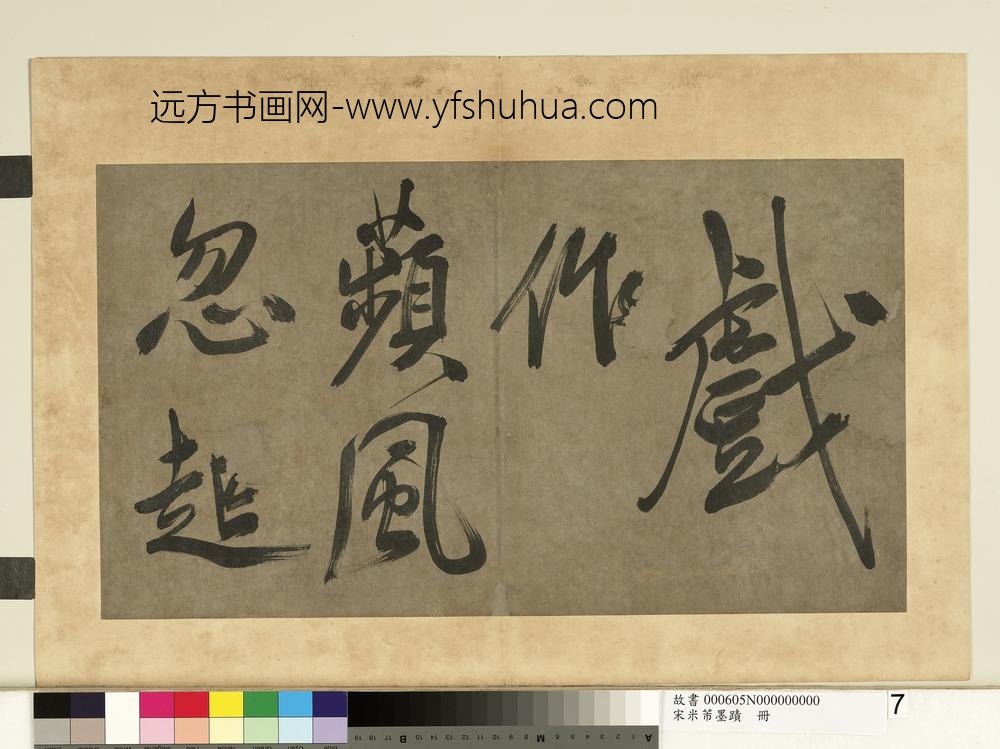 远方书画网-www.yfshuhua.com
戲
作
蘋風
忽起
故書 000605N000000000
宋米芾墨蹟 冊
7